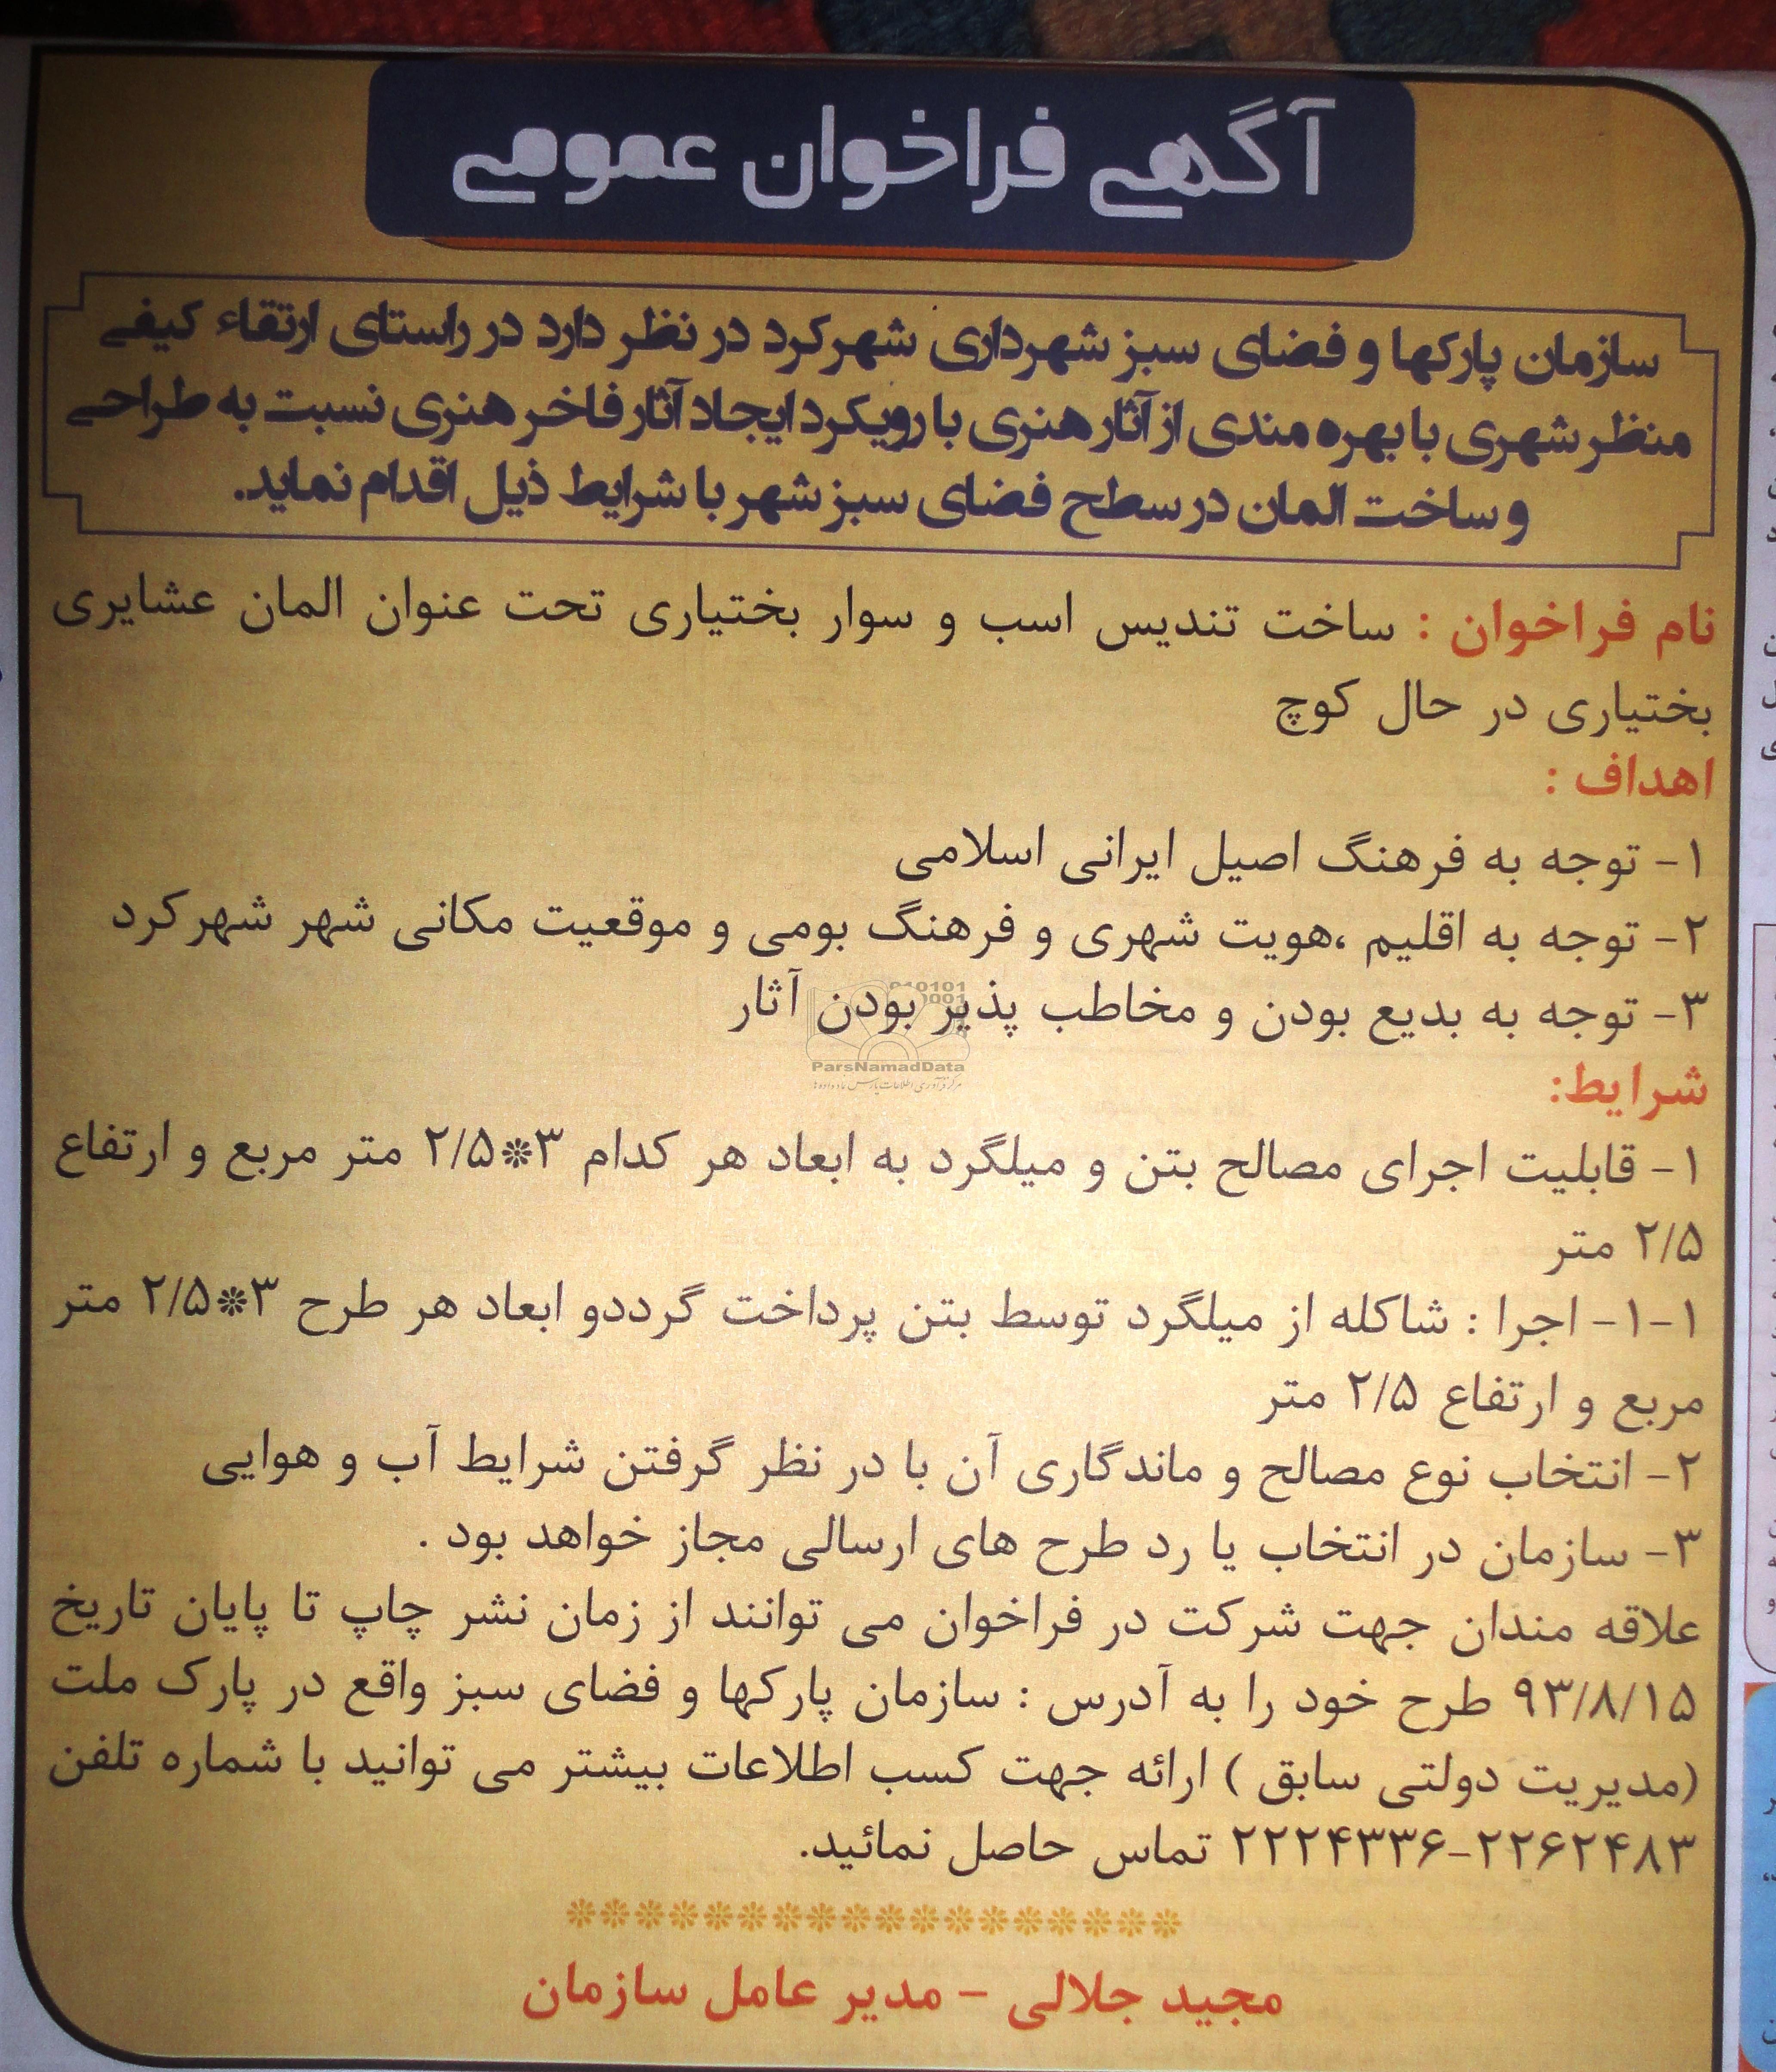 آگهی فراخوان عمومی
سازمان پارکها و فضای سبز شهرداری شهرکرد در نظر دارد در راستای ارتقاء کیفی
منظر شهری با بهره مندی از آثار هنری با رویکرد ایجاد آثار فاخر هنری نسبت به طراحی
و ساخت المان در سطح فضای سبز شهر با شرایط ذیل اقدام نماید.
نام فراخوان : ساخت تندیس اسب و سوار بختیاری تحت عنوان المان عشایری
بختیاری در حال کوچ
اهداف :
۱- توجه به فرهنگ اصیل ایرانی اسلامی
۲- توجه به اقلیم ،هویت شهری و فرهنگ بومی و موقعیت مکانی شهر شهرکرد
۳- توجه به بدیع بودن و مخاطب پذیر بودن آثار
010101
0001
ParsNamadData
مرکز فرآوری اطلاعات پارس نماد داده ها
شرایط:
۱- قابلیت اجرای مصالح بتن و میلگرد به ابعاد هر کدام ۳❊۲/۵ متر مربع و ارتفاع
۲/۵ متر
۱-۱- اجرا : شاکله از میلگرد توسط بتن پرداخت گرددو ابعاد هر طرح ۳❊۲/۵ متر
مربع و ارتفاع ۲/۵ متر
۲- انتخاب نوع مصالح و ماندگاری آن با در نظر گرفتن شرایط آب و هوایی
۳- سازمان در انتخاب یا رد طرح های ارسالی مجاز خواهد بود .
علاقه مندان جهت شرکت در فراخوان می توانند از زمان نشر چاپ تا پایان تاریخ
۹۳/۸/۱۵ طرح خود را به آدرس : سازمان پارکها و فضای سبز واقع در پارک ملت
(مدیریت دولتی سابق ) ارائه جهت کسب اطلاعات بیشتر می توانید با شماره تلفن
۲۲۲۴۳۳۶-۲۲۶۲۴۸۳ تماس حاصل نمائید.
❊❊❊❊❊❊❊❊❊❊❊❊❊❊❊❊❊❊
مجید جلالی - مدیر عامل سازمان